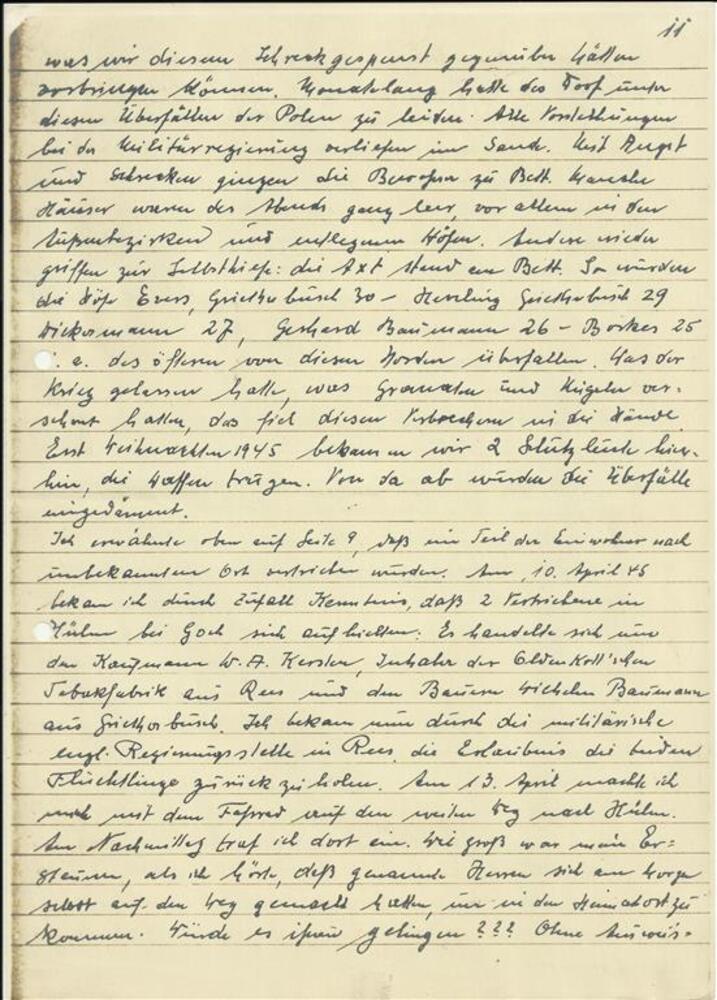 11
was wir diesem Schreckgespenst gegenüber hätten
vorbringen können. Monatelang hatte das Dorf unter
diesen Überfällen der Polen zu leiden. Alle Vorstellungen
bei der Militärregierung verliefen im Sande. Mit Angst
und Schrecken gingen die Bewohner zu Bett. Manche
Häuser waren des Abends ganz leer, vor allem in den
Außenbezirken und entlegenen Höfen. Andere wieder
griffen zur Selbsthilfe: die Axt stand am Bett. So wurden
die Höfe Evers, Grietherbusch 30 – Hessling Grietherbusch 29
27, Gerhard Baumann 26 – Börkes 25
u. a. des öfteren von diesen Horden überfallen. Was der
Krieg gelassen hatte, was Granaten und Kugeln ver-
schont hatten, das fiel diesen Verbrechern in die Hände.
Erst Weihnachten 1945 bekamen wir 2 Schutzleute hier-
hin, die Waffen trugen. Von da ab wurden die Überfälle
eingedämmt.
Ich erwähnte oben auf Seite 9, daß ein Teil der Einwohner nach
unbekanntem Ort vertrieben wurden. Am 10. April 45
bekam ich durch Zufall Kenntnis, daß 2 Vertriebene in
Hülm bei Goch sich aufhielten. Es handelte sich um
den Kaufmann W. A. Kersten, Inhaber der Oldenkott'schen
Tabakfabrik aus Rees und den Bauern Wilhelm Baumann
aus Grietherbusch. Ich bekam nun durch die militärische
engl. Regierungsstelle in Rees die Erlaubnis die beiden
Flüchtlinge zurück zu holen. Am 13. April machte ich
mich mit dem Fahrrad auf den weiten Weg nach Hülm.
Am Nachmittag traf ich dort ein. Wie groß war mein Er=
staunen, als ich hörte, daß genannte Herren sich am Morgen
selbst auf den Weg gemacht hatten, um in den Heimatort zu
kommen. Würde es ihnen gelingen ??? Ohne Ausweis=